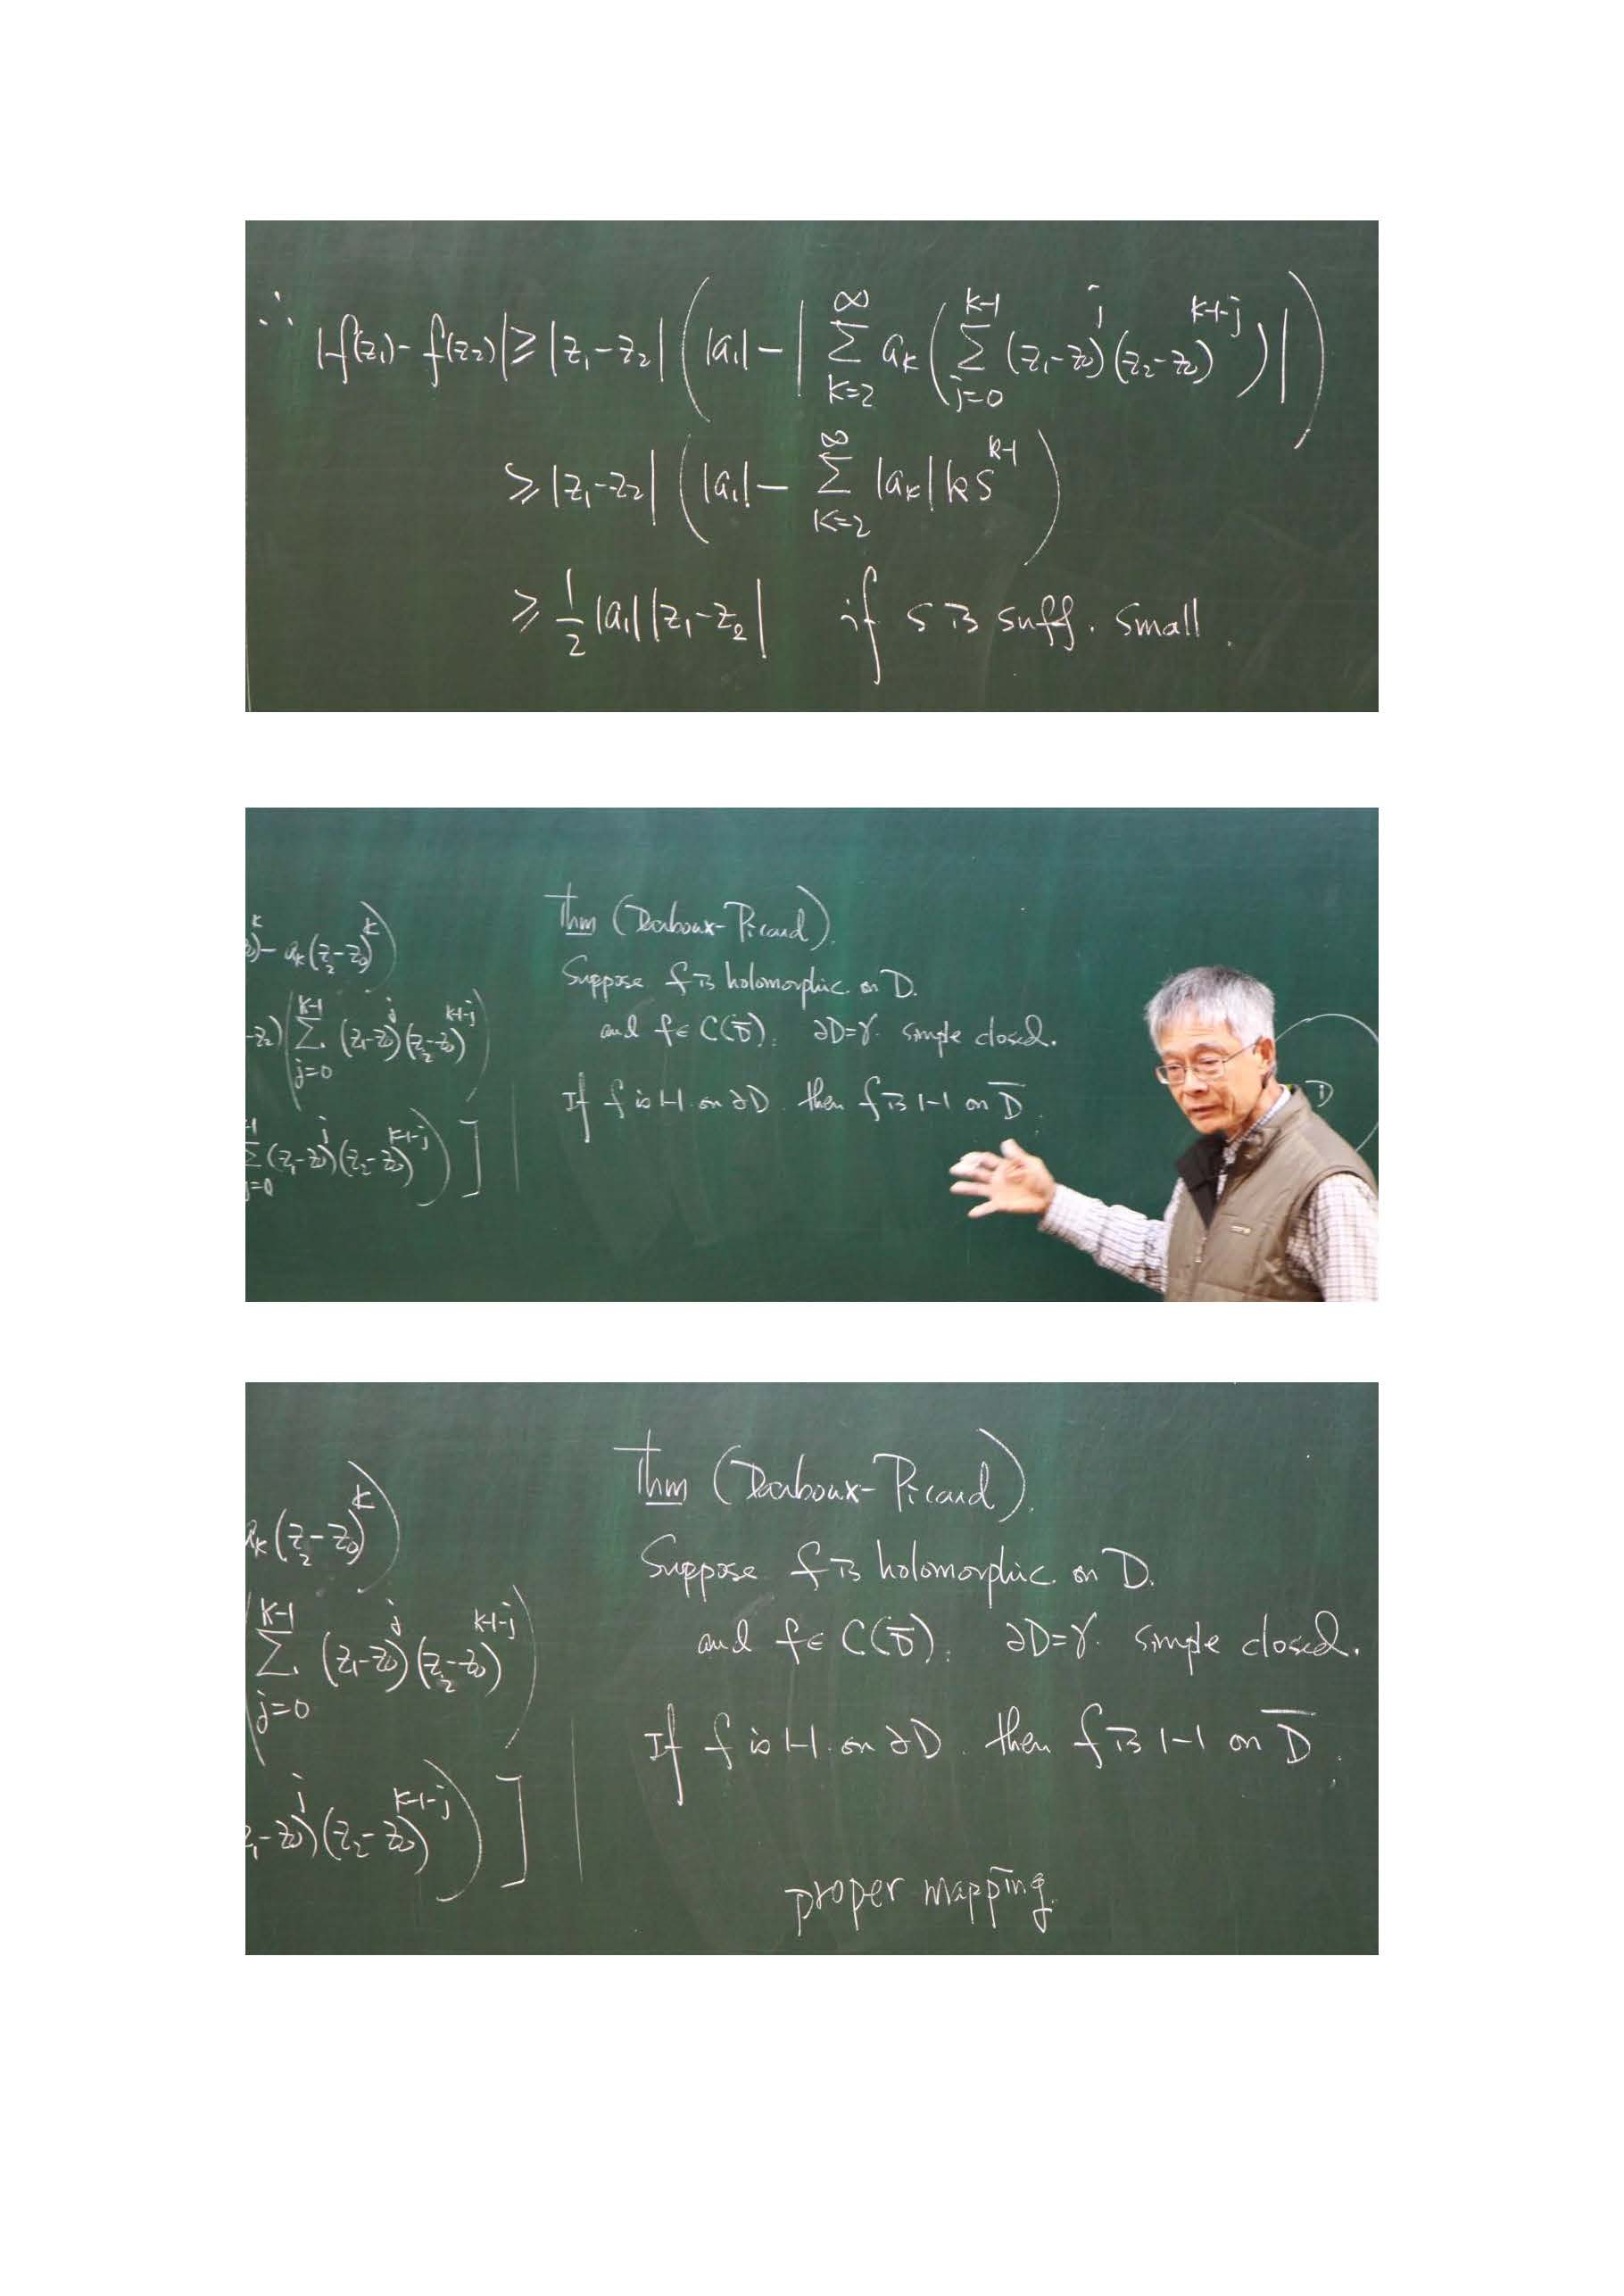 ∴ |f(z₁) - f(z₂)| ≥ |z₁ - z₂| ( |a₁| - | ∑_{k=2}^{∞} a_k ( ∑_{j=0}^{k-1} (z₁-z₀)^j (z₂-z₀)^{k-1-j} ) | )
≥ |z₁ - z₂| ( |a₁| - ∑_{k=2}^{∞} |a_k| k s^{k-1} )
≥ 1/2 |a₁| |z₁ - z₂| if s is suff. small.
) - a_k (z₂-z₀)^k )
-z₂) ( ∑_{j=0}^{k-1} (z₁-z₀)^j (z₂-z₀)^{k-1-j} )
∑_{j=0} (z₁-z₀)^j (z₂-z₀)^{k-1-j} ) ] |
Thm (Darboux-Picard).
Suppose f is holomorphic on D.
and f ∈ C(D̅). ∂D=γ. simple closed.
If f is 1-1 on ∂D. then f is 1-1 on D̅.
D
a_k (z₂-z₀)^k )
( ∑_{j=0}^{k-1} (z₁-z₀)^j (z₂-z₀)^{k-1-j} )
z₁-z₀)^j (z₂-z₀)^{k-1-j} ) ] |
Thm (Darboux-Picard).
Suppose f is holomorphic on D.
and f ∈ C(D̅). ∂D=γ. simple closed.
If f is 1-1 on ∂D. then f is 1-1 on D̅.
proper mapping.